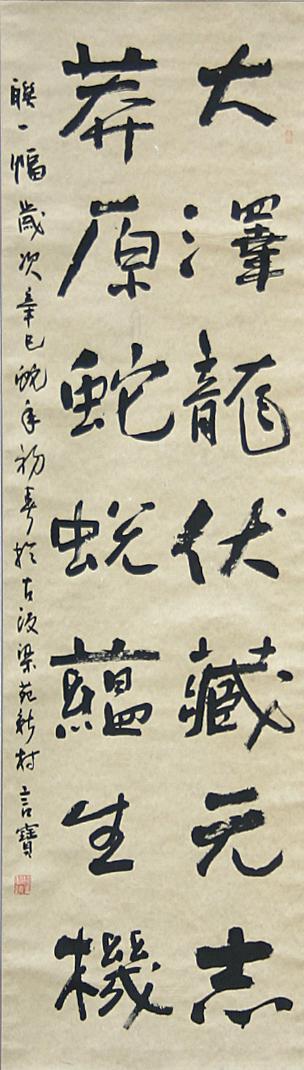 大澤龍伏藏元志
莽原蛇蛻蘊生機
聯一幅歲次辛巳蛇年初春於古汲梁苑新村言寶